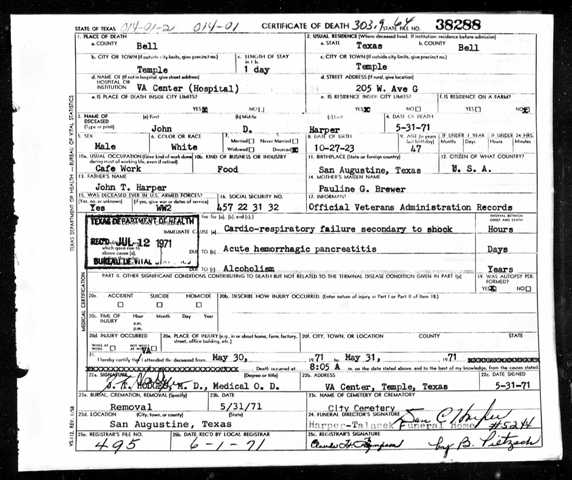 STATE OF TEXAS 014-01-2 014-01 CERTIFICATE OF DEATH 303.9 64 STATE FILE NO. 38288
1. PLACE OF DEATH 2. USUAL RESIDENCE (Where deceased lived. If institution: residence before admission)
a. COUNTY Bell a. STATE Texas b. COUNTY Bell
b. CITY OR TOWN (If outside city limits, give precinct no.) c. LENGTH OF STAY c. CITY OR TOWN (If outside city limits, give precinct no.)
Temple 1 day Temple
d. NAME OF (If not in hospital, give street address) HOSPITAL OR INSTITUTION VA Center (Hospital) d. STREET ADDRESS (If rural, give location) 205 W. Ave G
e. IS PLACE OF DEATH INSIDE CITY LIMITS? e. IS RESIDENCE INSIDE CITY LIMITS? f. IS RESIDENCE ON A FARM?
YES NO YES NO YES NO
3. NAME OF DECEASED (Type or print) John D. Harper 4. DATE OF DEATH 5-31-71
5. SEX Male 6. COLOR OR RACE White 7. Married Never Married Widowed Divorced 8. DATE OF BIRTH 10-27-23 47 IF UNDER 1 YEAR Months Days IF UNDER 24 HRS. Hours Min.
10a. USUAL OCCUPATION (Give kind of work done during most of working life, even if retired) Cafe Work 10b. KIND OF BUSINESS OR INDUSTRY Food 11. BIRTHPLACE (State or foreign country) San Augustine, Texas 12. CITIZEN OF WHAT COUNTRY? U. S. A.
13. FATHER'S NAME John T. Harper 14. MOTHER'S MAIDEN NAME Pauline G. Brewer
15. WAS DECEASED EVER IN U.S. ARMED FORCES? Yes WW2 16. SOCIAL SECURITY NO. 457 22 31 32 17. INFORMANT Official Veterans Administration Records
TEXAS DEPARTMENT OF HEALTH
IMMEDIATE CAUSE (a) Cardio-respiratory failure secondary to shock Hours
REC'D JUL 12 1971 DUE TO (b) Acute hemorrhagic pancreatitis Days
BUREAU OF VITAL STATISTICS DUE TO (c) Alcoholism Years
PART II. OTHER SIGNIFICANT CONDITIONS CONTRIBUTING TO DEATH BUT NOT RELATED TO THE TERMINAL DISEASE CONDITION GIVEN IN PART I(a) 19. WAS AUTOPSY PERFORMED? YES NO
20a. ACCIDENT SUICIDE HOMICIDE 20b. DESCRIBE HOW INJURY OCCURRED. (Enter nature of injury in Part I or Part II of item 18.)
20c. TIME OF INJURY Hour Month Day Year a.m. p.m.
20d. INJURY OCCURRED WHILE AT WORK NOT WHILE AT WORK 20e. PLACE OF INJURY (e.g., in or about home, farm, factory, street, office building, etc.) 20f. CITY, TOWN, OR LOCATION COUNTY STATE
21. I hereby certify VA attended the deceased from May 30, 1971 TO May 31, 1971
Death occurred at 8:05 A m. on the date stated above, and to the best of my knowledge, from the causes stated.
22a. SIGNATURE (Degree or title) M. D., Medical O. D. 22b. ADDRESS VA Center, Temple, Texas 22c. DATE SIGNED 5-31-71
23a. BURIAL, CREMATION, REMOVAL (Specify) Removal 23b. DATE 5/31/71 23c. NAME OF CEMETERY OR CREMATORY City Cemetery
23d. LOCATION (City, town, or county) (State) San Augustine, Texas 24. FUNERAL DIRECTOR'S SIGNATURE Harper-Talasek Funeral Home #5244
25a. REGISTRAR'S FILE NO. 495 25b. DATE REC'D BY LOCAL REGISTRAR 6-1-71 25c. REGISTRAR'S SIGNATURE by B. Pietzsch
TEXAS DEPARTMENT OF HEALTH — BUREAU OF VITAL STATISTICS
MEDICAL CERTIFICATION